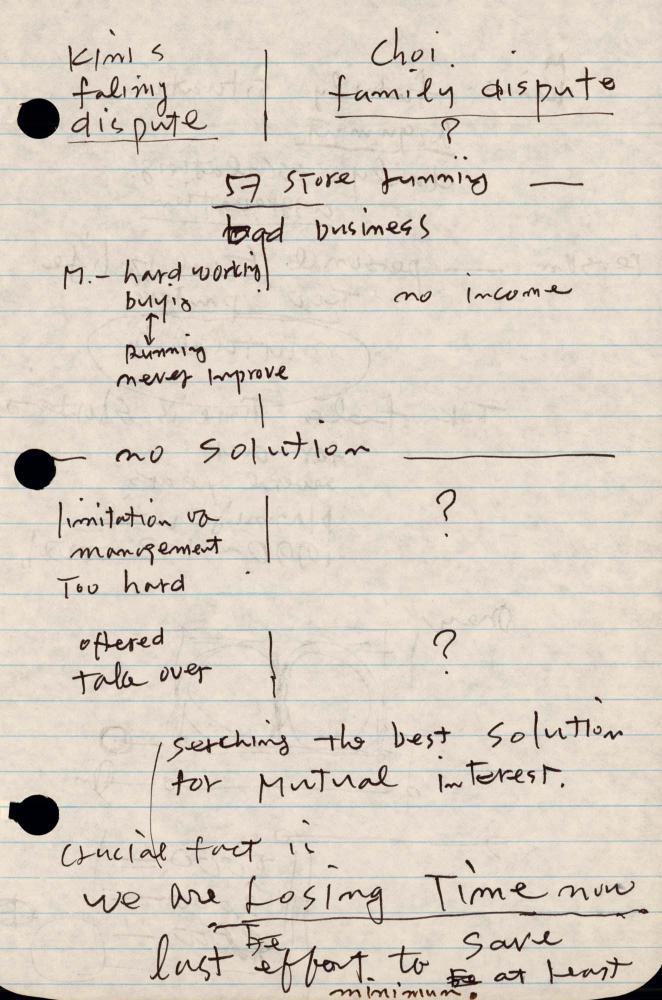 Kim's
falimy
dispute
Choi.
family dispute
?
57 store running —
bad business
M. - hard working
buyig
↕
Running
never improve
no income
— no solution —
limitation
management
Too hard
?
offered
take over
?
serching the best solution
for mutual interest.
crucial fact is
we are Losing Time now
be
last effort to save
at least
minimum.